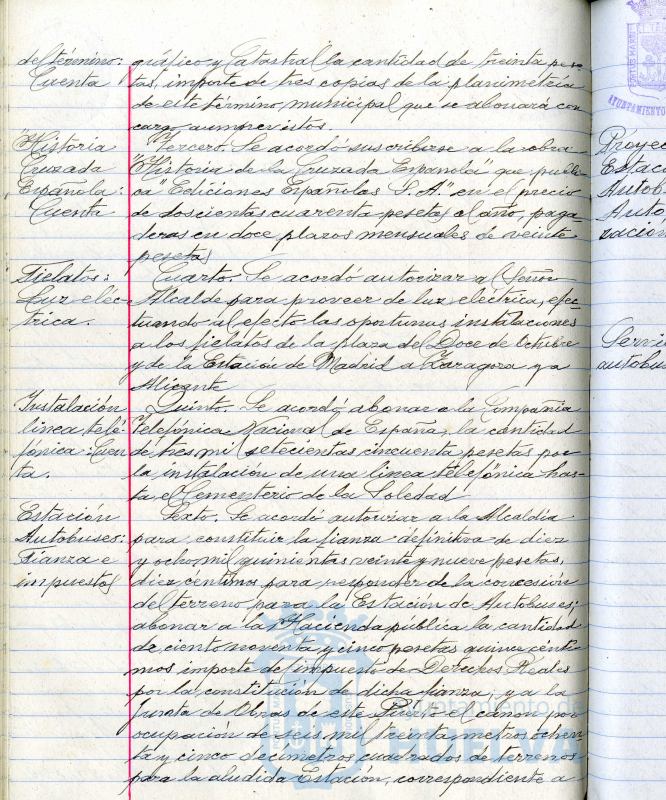 del término:
Cuenta
gráfico y Catastral la cantidad de treinta pese-
tas, importe de tres copias de la planimetría
de este término municipal que se abonará con
cargo a imprevistos.
"Historia
Cruzada
Española:
Cuenta
Tercero. Se acordó suscribirse a la obra
"Historia de la Cruzada Española" que publi-
ca "Ediciones Españolas S.A." en el precio
de doscientas cuarenta pesetas al año, paga-
deras en doce plazos mensuales de veinte
pesetas
Fielatos:
Luz eléc-
trica.
Cuarto. Se acordó autorizar al Señor
Alcalde para proveer de luz eléctrica, efec-
tuando al efecto las oportunas instalaciones
a los fielatos de la plaza del Doce de Octubre
y de la Estación de Madrid a Zaragoza y a
Alicante
Instalación
linea tele-
fónica: Cuen-
ta.
Quinto. Se acordó abonar a la Compañia
Telefónica Nacional de España, la cantidad
de tres mil setecientas cincuenta pesetas por
la instalación de una linea telefónica has-
ta el Cementerio de la Soledad
Estación
Autobuses:
Fianza e
impuestos
Sexto. Se acordó autorizar a la Alcaldía
para constituir la fianza definitiva de diez
y ocho mil quinientas veinte y nueve pesetas,
diez céntimos para responder de la concesión
del terreno para la Estación de Autobuses;
abonar a la Hacienda pública la cantidad
de ciento noventa y cinco pesetas quince cénti-
mos importe del impuesto de Derechos Reales
por la constitución de dicha fianza; y a la
Junta de Obras de este Puerto el cánon por
ocupación de seis mil treinta metros ochen-
ta y cinco decímetros cuadrados de terrenos
para la aludida Estación, correspondiente a
Proyec
Estac
Autob
Auto
zación
Servi
autobus
Ayuntamiento de
HUELVA
AYUNTAMIENTO